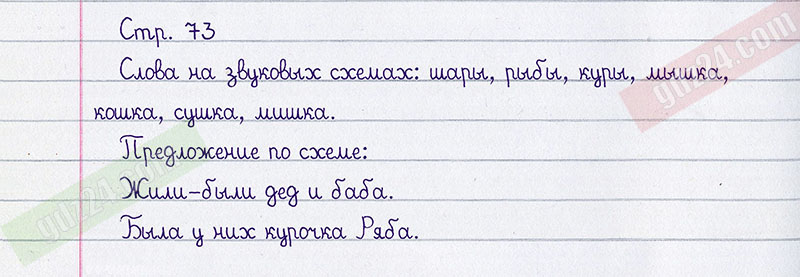 Стр. 73
Слова на звуковых схемах: шары, рыбы, куры, мышка,
кошка, сушка, мишка.
Предложение по схеме:
Жили-были дед и баба.
Была у них курочка Ряба.
gdz24.com
gdz24.com